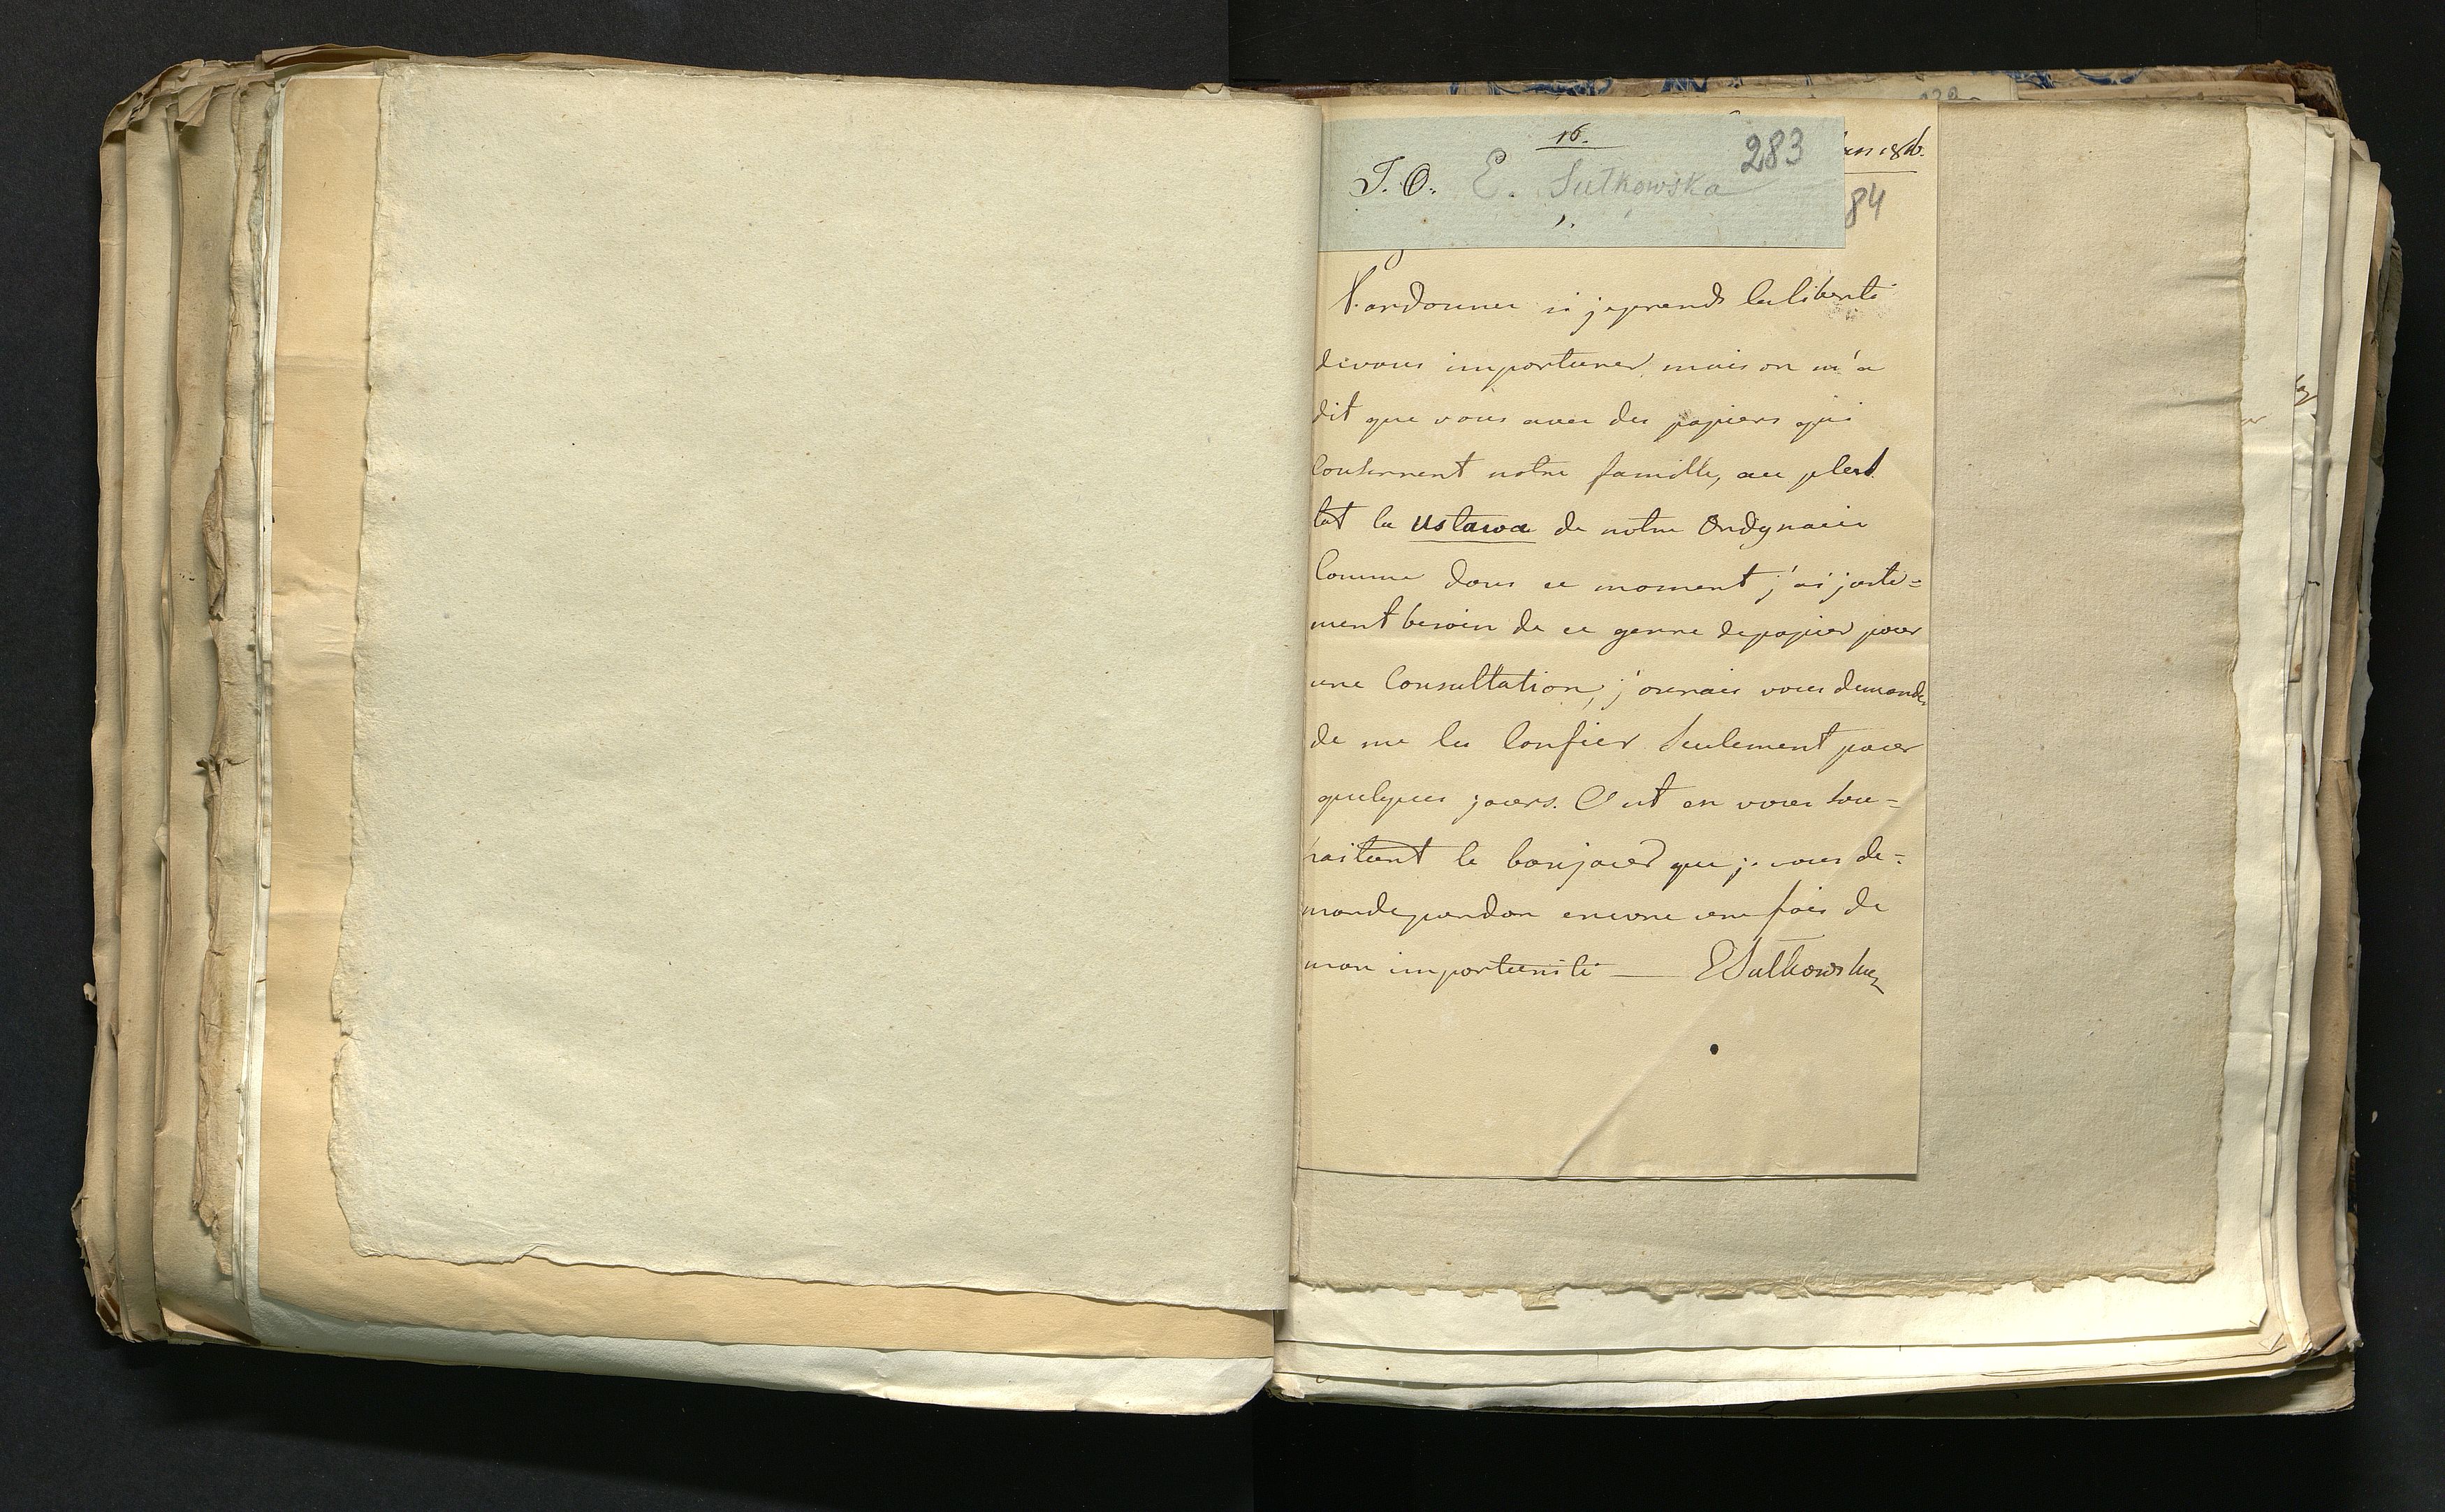 16.
283
J. O. E. Sułkowska
1.
84
Pardonnez si je prends la liberté
de vous importuner, mais on m'a
dit que vous avez des papiers qui
consernent notre famille, au
la Ustawa de notre Ordynacie
Comme dans ce moment j'ai juste=
ment besoin de ce genre de papier pour
une Consultation, j'oserais vous demander
de me les confier seulement pour
quelques jours. C'est en vous sou=
haitant le bonjour que je vous de=
mande pardon encore une fois de
mon importunité — E Sułkowska